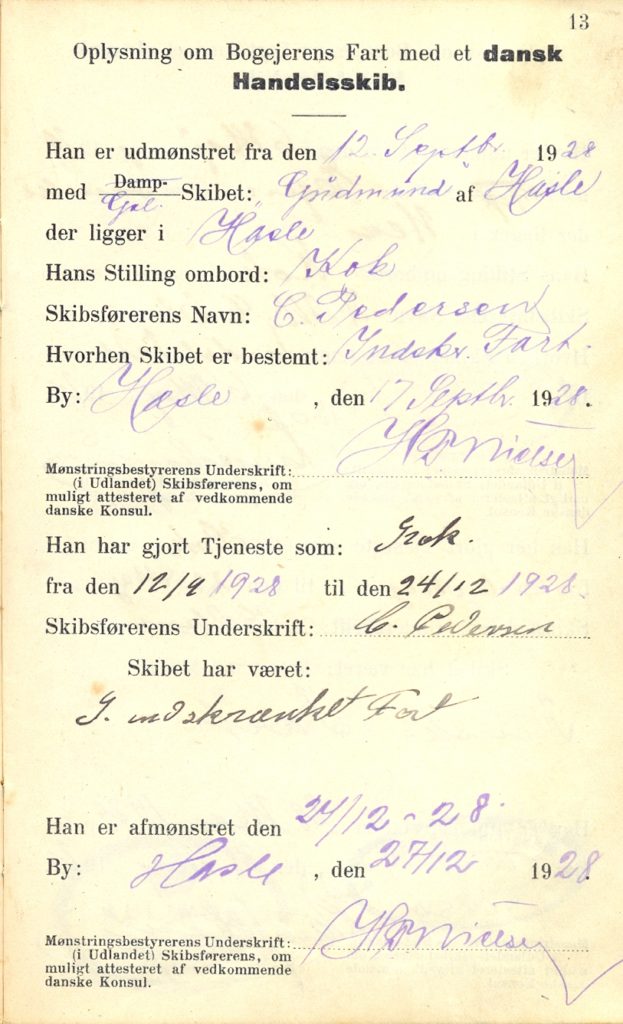 13
Oplysning om Bogejerens Fart med et dansk
Handelsskib.
Han er udmønstret fra den 12. Septbr. 1928
med Damp- Skibet: Gudmund af Hasle
Gal.
der ligger i Hasle
Hans Stilling ombord: Kok
Skibsførerens Navn: C. Pedersen
Hvorhen Skibet er bestemt: Indskr. Fart.
By: Hasle, den 17 Septbr. 1928.
H P Nielsen
Mønstringsbestyrerens Underskrift:
(i Udlandet) Skibsførerens, om
muligt attesteret af vedkommende
danske Konsul.
Han har gjort Tjeneste som: Kok.
fra den 12/9 1928 til den 24/12 1928.
Skibsførerens Underskrift: C. Pedersen
Skibet har været:
I. indskrænket Fart
Han er afmønstret den 24/12 - 28.
By: Hasle, den 27/12 1928.
H P Nielsen
Mønstringsbestyrerens Underskrift:
(i Udlandet) Skibsførerens, om
muligt attesteret af vedkommende
danske Konsul.